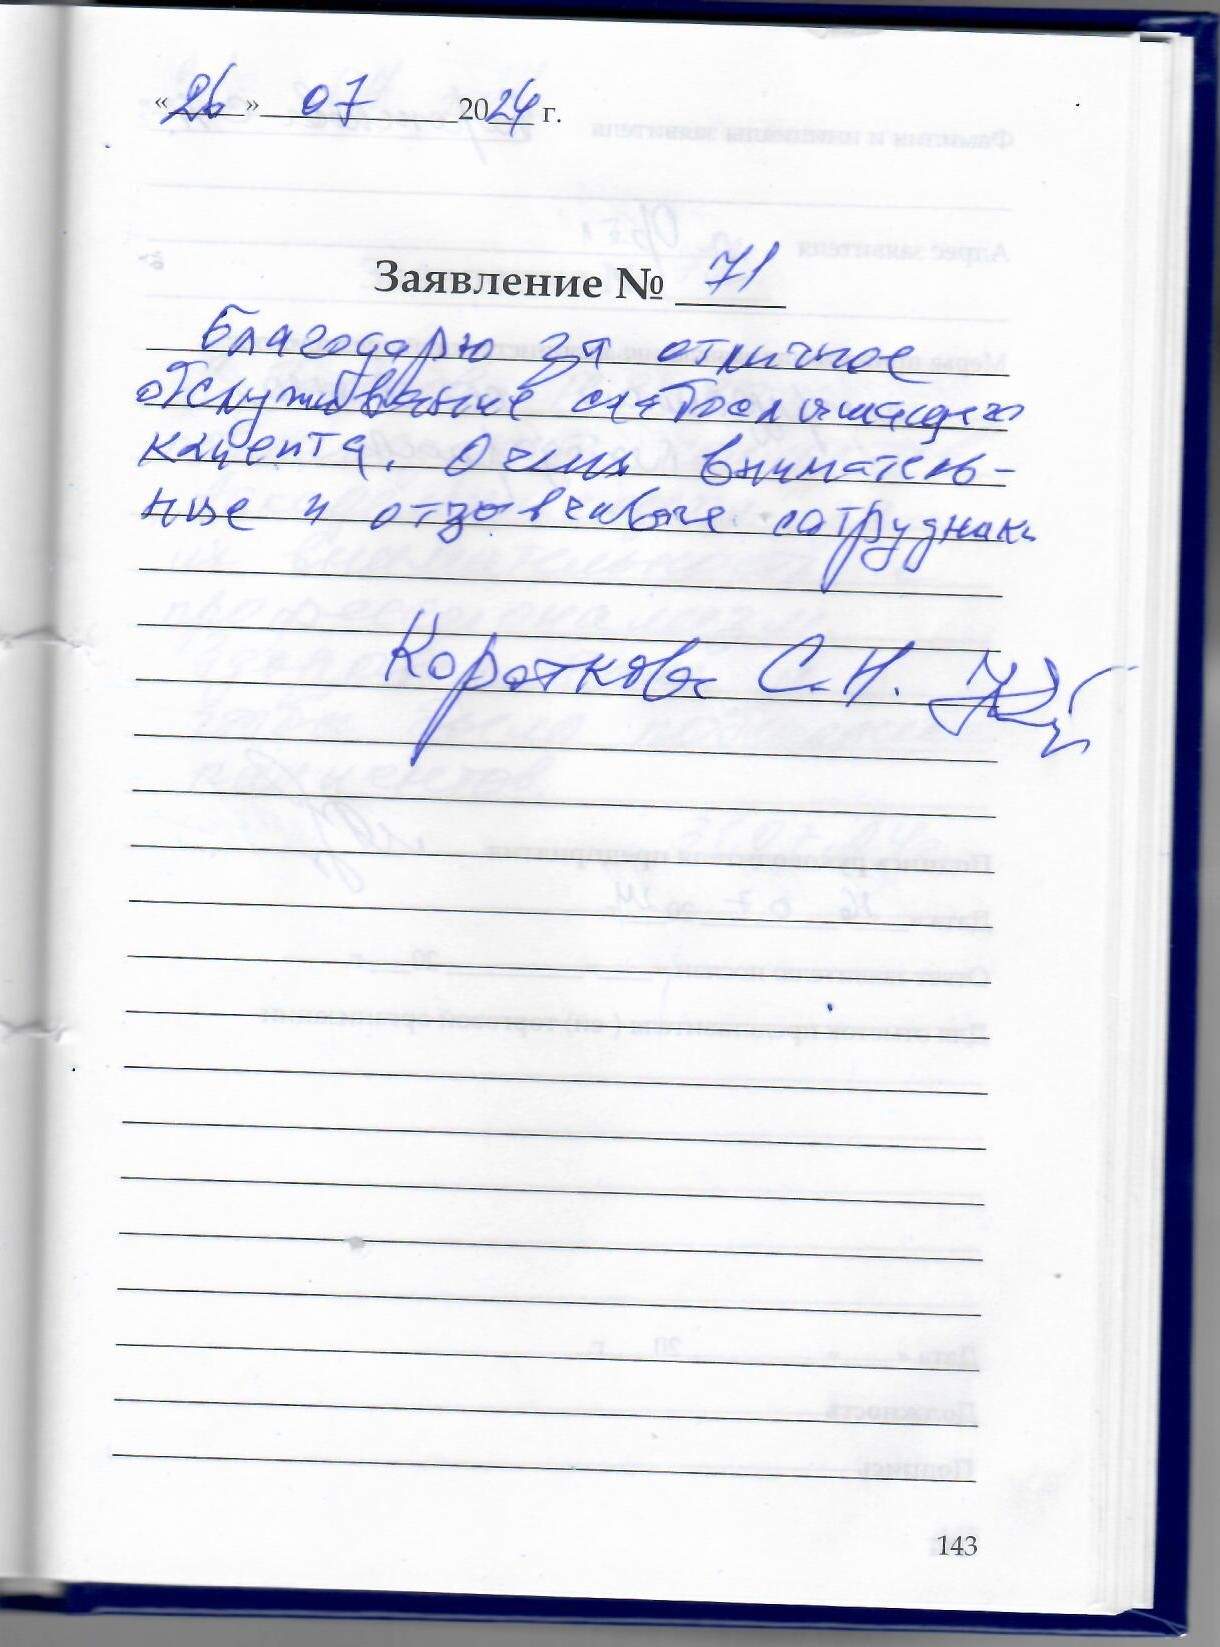 «26» 07 2024 г.
Заявление № 71
Благодарю за отличное
обслуживание слабослышащего
клиента. Очень вниматель-
ные и отзывчивые сотрудники
Короткова С.Н.
143